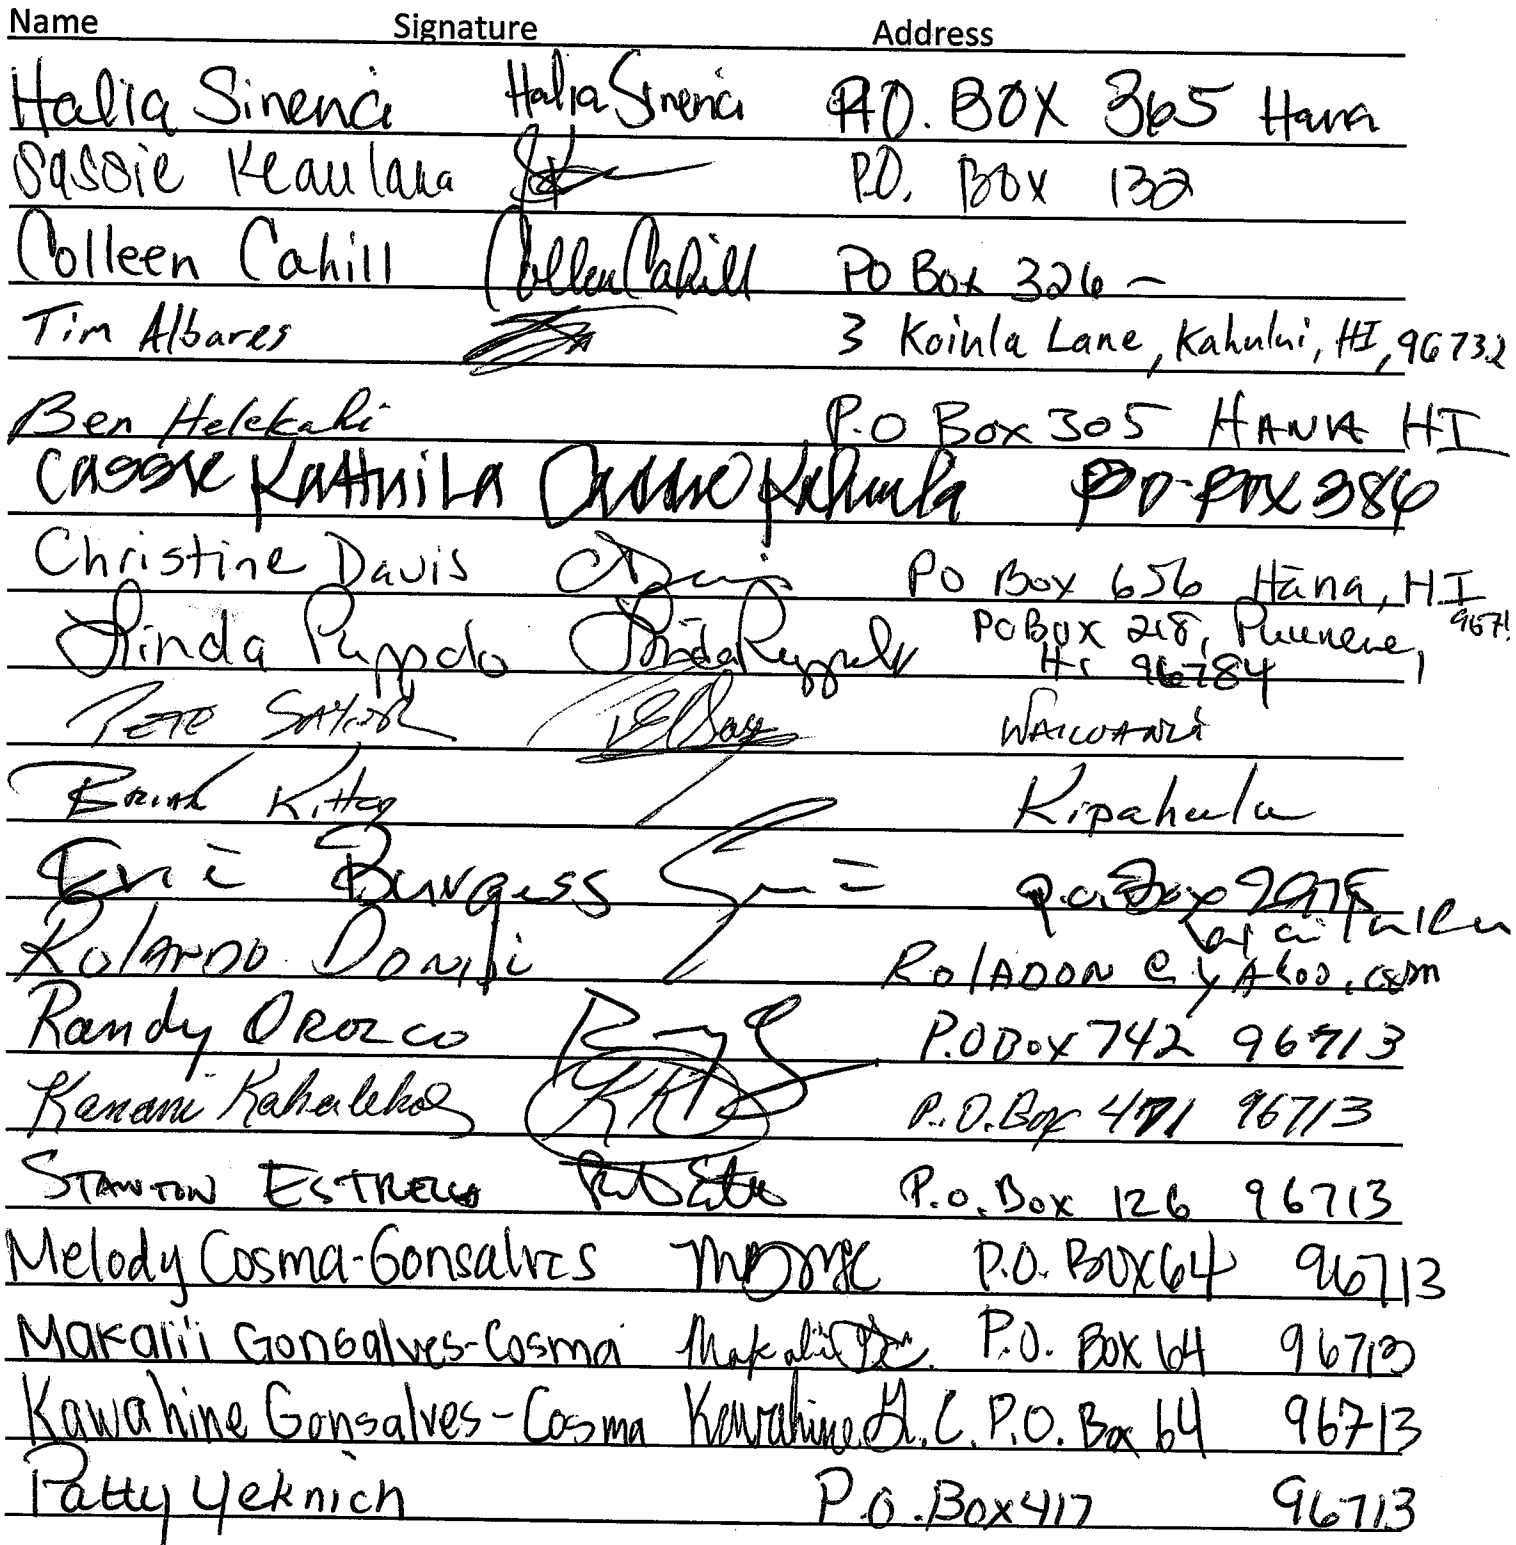 Name Signature Address
Halia Sinenci Halia Sinenci P.O. BOX 365 Hana
Sassie Keaulana P.O. BOX 132
Colleen Cahill Colleen Cahill PO Box 326 -
Tim Albares 3 Koinla Lane, Kahului, HI, 96732
Ben Helekahi P.O Box 305 HANA HI
Cassie Kahuila Cassie Kahuila PO BOX 386
Christine Davis PO Box 656 Hāna, HI
Linda Puppolo Linda Puppolo PO Box 218, Puunene, 967
HI 96784
PETE
Brian Kipahulu
Eric Burgess P.O. Box
ROLANDO ROLADON@YAHOO.COM
Randy OROZCO P.O Box 742 96713
Kanani P.O. Box 471 96713
STANTON ESTRELLA P.O. Box 126 96713
Melody Cosma-Gonsalves P.O. BOX 64 96713
Makalii Gonsalves-Cosma Makalii P.O. BOX 64 96713
Kawahine Gonsalves-Cosma Kawahine G. C. P.O. Box 64 96713
Patty Yeknich P.O. Box 417 96713